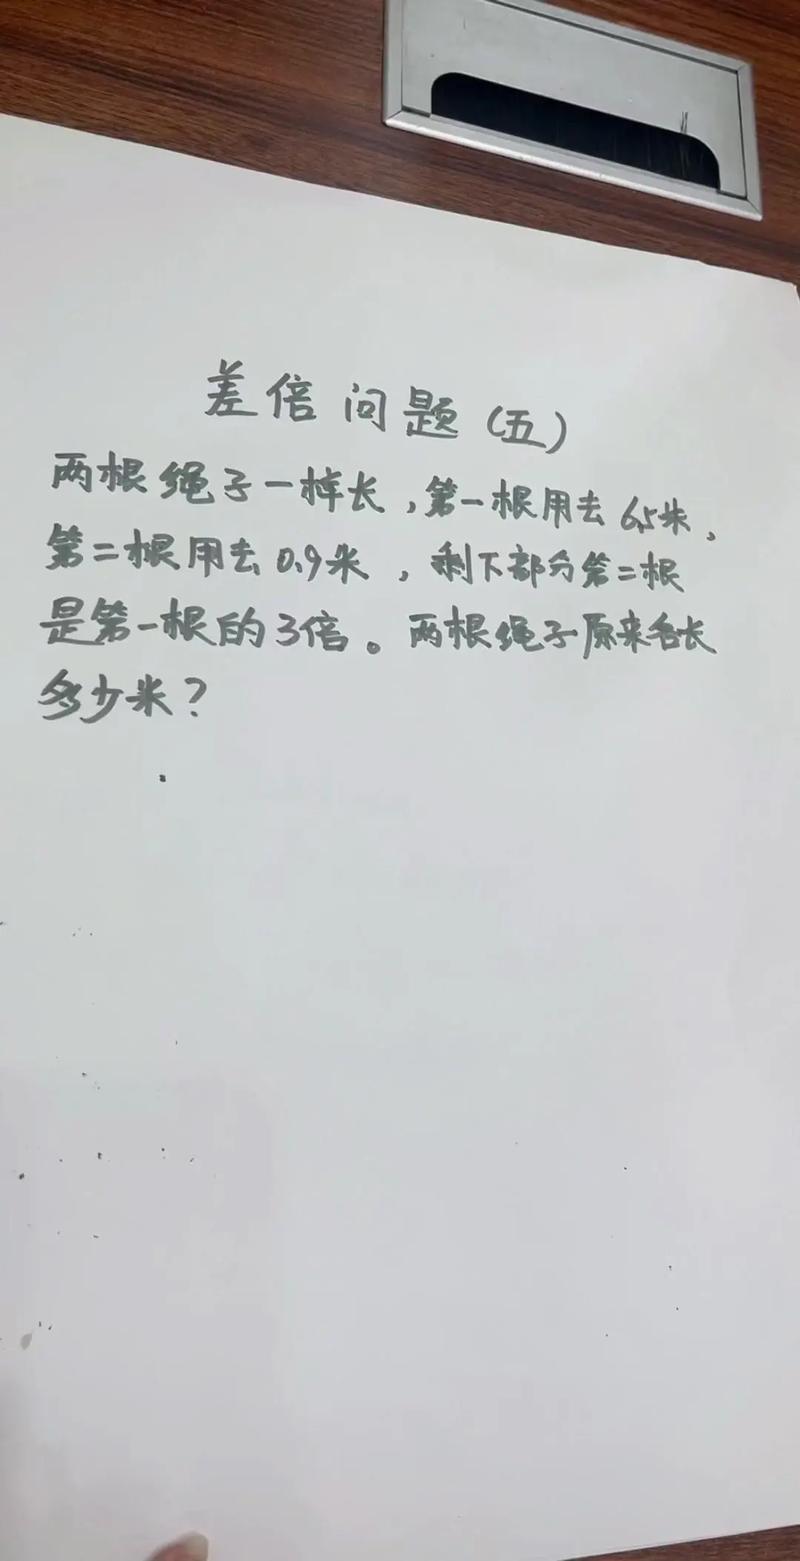 差倍问题(五)
两根绳子一样长,第一根用去6.5米,
第二根用去0.9米,剩下部分第二根
是第一根的3倍。两根绳子原来各长
多少米?